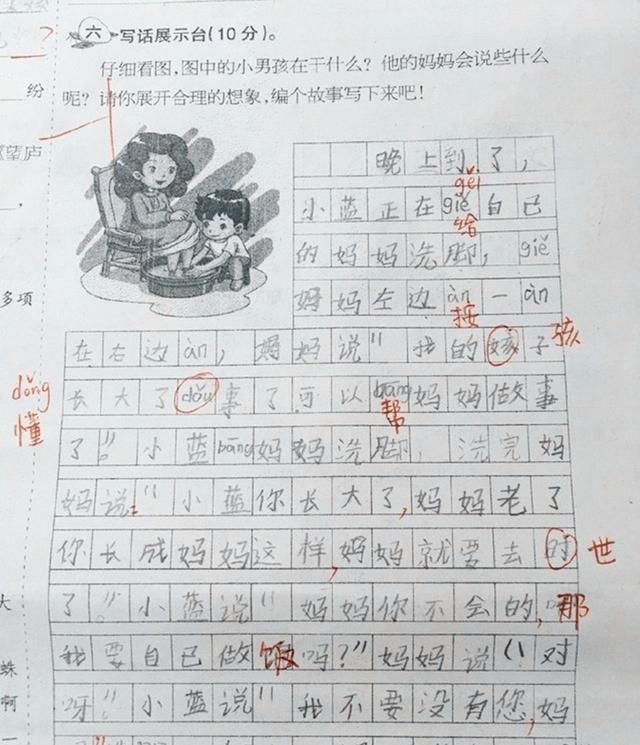 六 写话展示台(10 分)。
仔细看图,图中的小男孩在干什么? 他的妈妈会说些什么
呢? 请你展开合理的想象,编个故事写下来吧!
?
纷
望庐
多项
大
蛛
啊
一
晚上到了,
gěi
小蓝正在giě自己
给
的妈妈洗脚,giě
妈妈左边àn一àn
按
在右边àn,妈妈说"我的嫁子
孩
dǒng
懂
长大了dǒu事了可以bāng妈妈做事
帮
了"。小蓝bāng妈妈洗脚,洗完妈
妈说:"小蓝你长大了,妈妈老了
你长成妈妈这样,妈妈就要去时
世
了"。小蓝说"妈妈你不会的,
那
我要自己做饭吗?"妈妈说"对
呀"。小蓝说"我不要没有您,妈